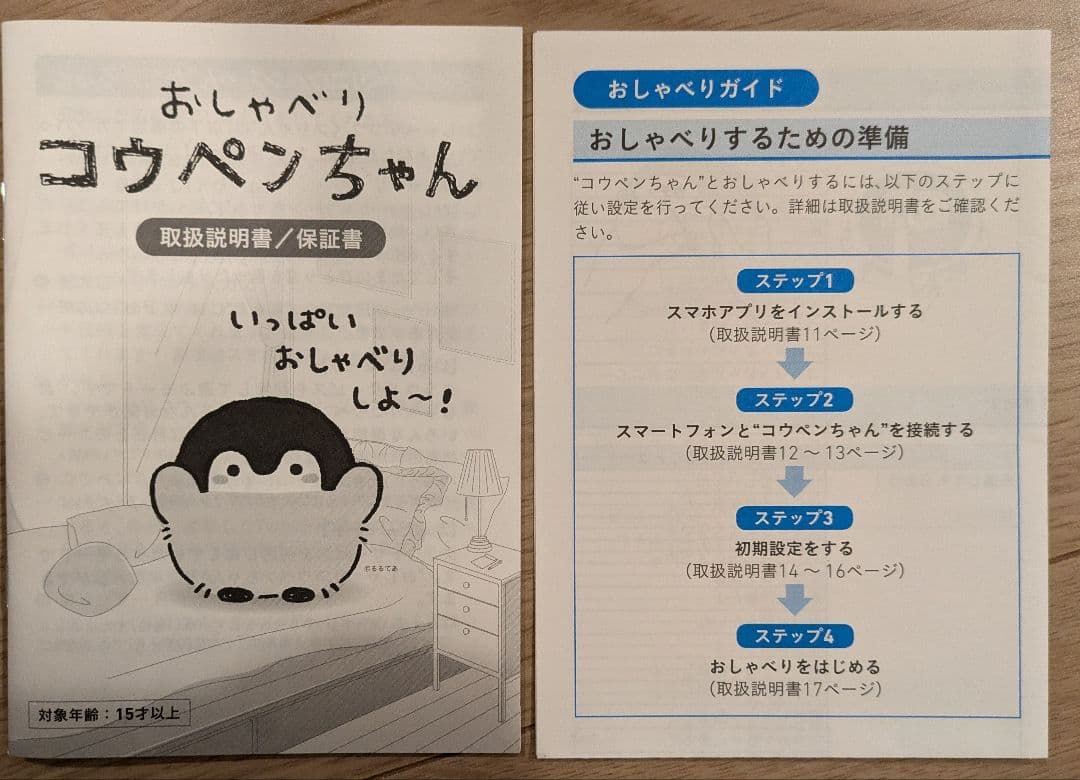 おしゃべり
コウペンちゃん
取扱説明書／保証書
いっぱい
おしゃべり
しよ〜！
るるてあ
対象年齢：15才以上
おしゃべりガイド
おしゃべりするための準備
“コウペンちゃん”とおしゃべりするには、以下のステップに
従い設定を行ってください。詳細は取扱説明書をご確認くだ
さい。
ステップ1
スマホアプリをインストールする
（取扱説明書11ページ）
ステップ2
スマートフォンと“コウペンちゃん”を接続する
（取扱説明書12 〜 13ページ）
ステップ3
初期設定をする
（取扱説明書14 〜 16ページ）
ステップ4
おしゃべりをはじめる
（取扱説明書17ページ）